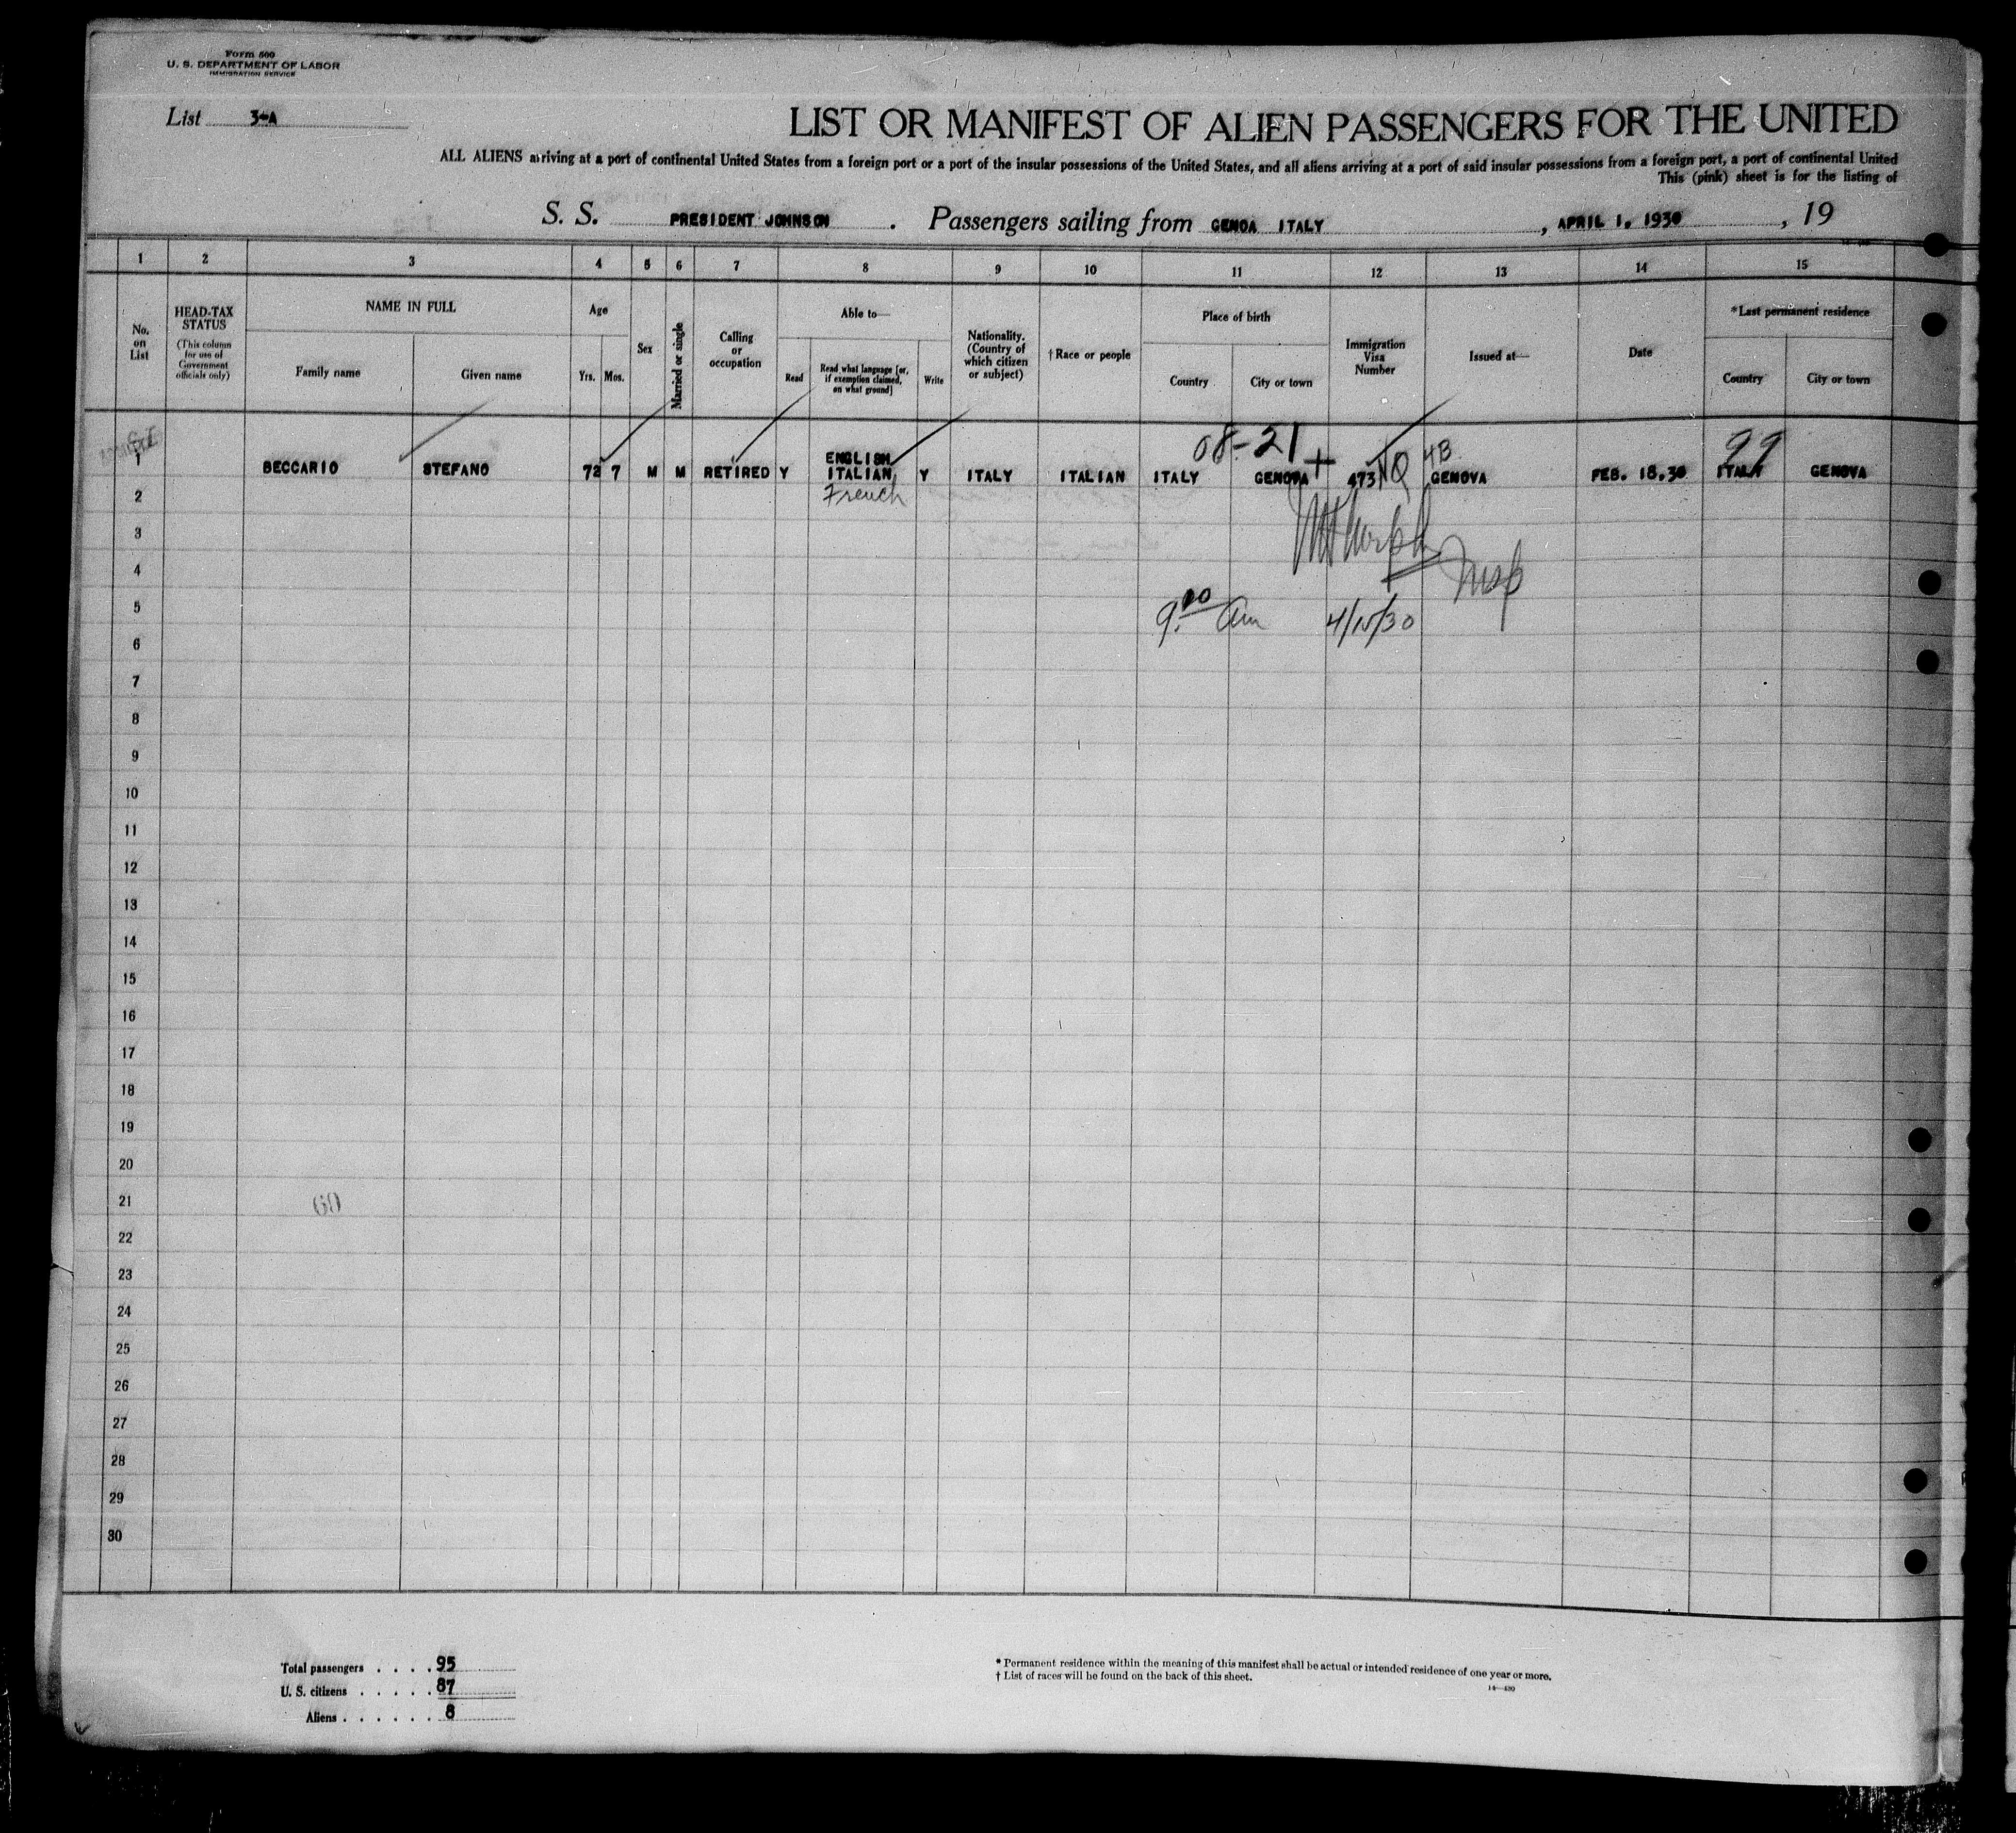 Form 500
U. S. DEPARTMENT OF LABOR
IMMIGRATION SERVICE
List 3-A
LIST OR MANIFEST OF ALIEN PASSENGERS FOR THE UNITED
ALL ALIENS arriving at a port of continental United States from a foreign port or a port of the insular possessions of the United States, and all aliens arriving at a port of said insular possessions from a foreign port, a port of continental United
This (pink) sheet is for the listing of
S. S. PRESIDENT JOHNSON . Passengers sailing from GENOA ITALY , APRIL 1, 1930 , 19
1 2 3 4 5 6 7 8 9 10 11 12 13 14 15
No. on List
HEAD-TAX STATUS
(This column for use of Government officials only)
NAME IN FULL
Family name
Given name
Age
Yrs. Mos.
Sex
Married or single
Calling or occupation
Able to—
Read
Read what language [or, if exemption claimed, on what ground]
Write
Nationality. (Country of which citizen or subject)
† Race or people
Place of birth
Country
City or town
Immigration Visa Number
Issued at—
Date
* Last permanent residence
Country
City or town
08-21 + 4B 99
1 BECCARIO STEFANO 72 7 M M RETIRED Y ENGLISH ITALIAN Y ITALY ITALIAN ITALY GENOVA 473 NQ GENOVA FEB. 18.30 ITALY GENOVA
2 French
3
4 Insp
5 9.00 am 4/15/30
6
7
8
9
10
11
12
13
14
15
16
17
18
19
20
21 60
22
23
24
25
26
27
28
29
30
Total passengers . . . . 95
U. S. citizens . . . . . 87
Aliens . . . . . . 8
* Permanent residence within the meaning of this manifest shall be actual or intended residence of one year or more.
† List of races will be found on the back of this sheet.
14—430